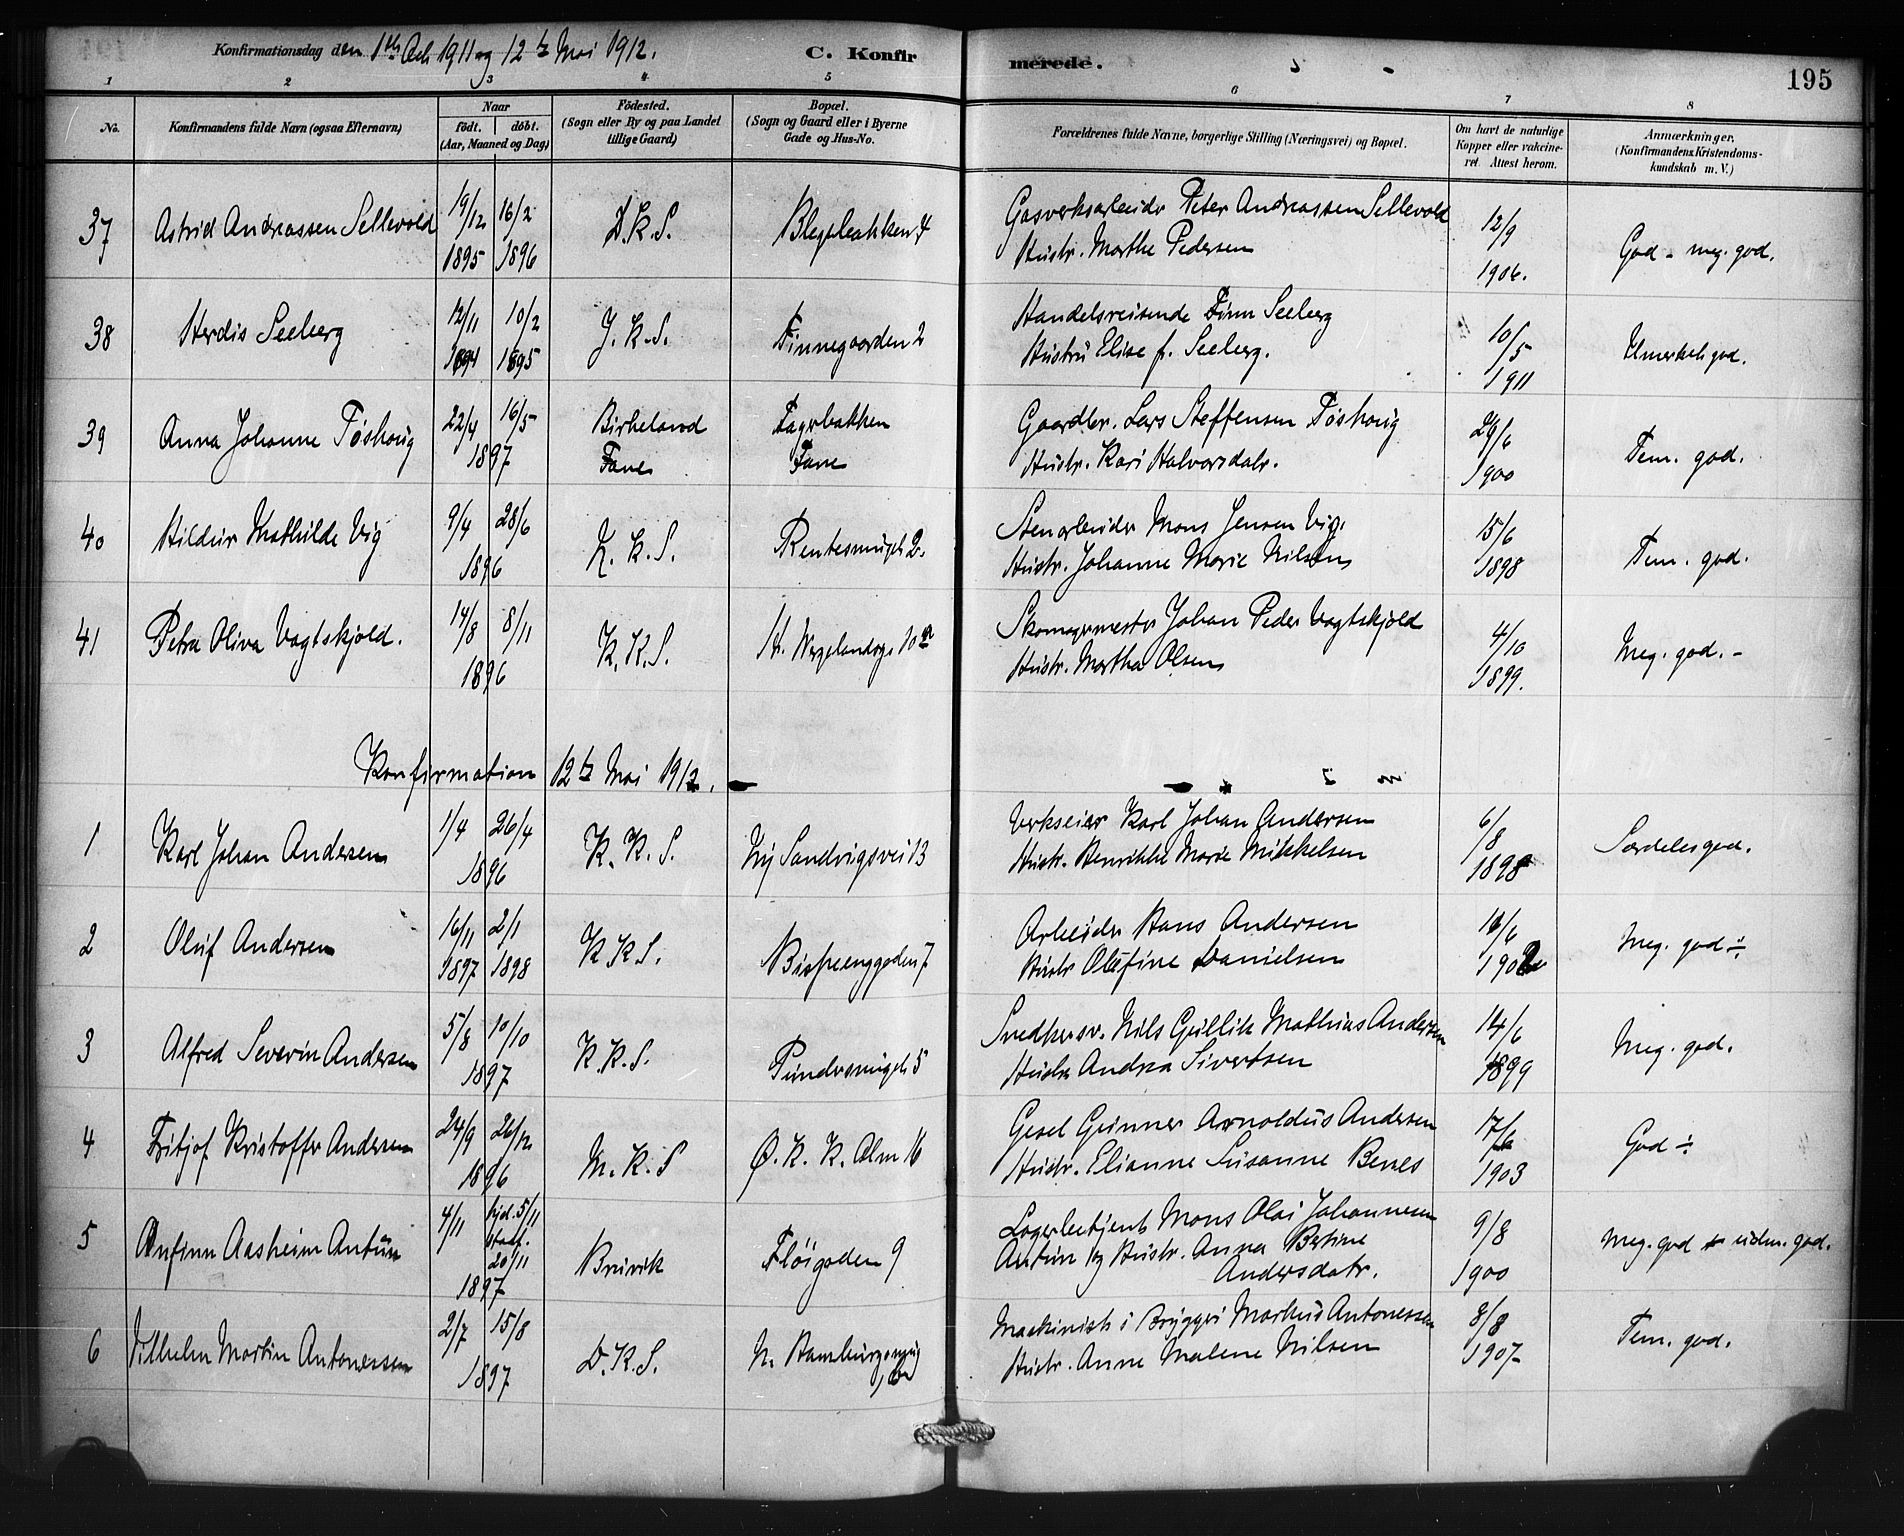 Konfirmationsdag den 1ste Oct 1911 og 12te Mai 1912.
C. Konfirmerede.
195
1 2 3 4 5 6 7 8
No.
Konfirmandens fulde Navn (ogsaa Efternavn)
Naar
födt. döbt.
(Aar, Maaned og Dag)
Födested.
(Sogn eller By og paa Landet
tillige Gaard)
Bopæl.
(Sogn og Gaard eller i Byerne
Gade og Hus-No.
Forældrenes fulde Navne, borgerlige Stilling (Næringsvei) og Bopæl.
Om havt de naturlige
Kopper eller vakcine-
ret. Attest herom.
Anmærkninger.
(Konfirmandens Kristendoms-
kundskab m. V.)
37 Astrid Andreassen Sellevold 19/12 1895 16/2 1896 D.K.S. Blegebakken 4
Gasverksarbeider Peter Andreassen Sellevold
Hustr. Marthe Pedersen
12/9 1906. God - meg. god.
38 Herdis Seeberg 12/11 1894 10/2 1895 J.K.S. Finnegaarden 2
Handelsreisende Finn Seeberg
Hustru Elise f. Seeberg.
10/5 1911 Udmerket god.
39 Anna Johanne Töskoug 22/4 16/5 1897 Birkeland Fane Fagerbakken Fane
Gaardbr. Lars Steffensen Töskoug
Hustr. Kari Halvorsdatr.
29/6 1900 Tem. god.
40 Hildur Mathilde Vig 9/4 28/6 1896 N.K.S. Rentesmuget 2.
Stenarbeider Mons Jensen Vig.
Hustr. Johanne Marie Nilsen
15/6 1898 Tem. god.
41 Petra Oliva Vogtskjold. 14/8 8/11 1896 K.K.S. H. Wergelandsg. 10
Skomagermester Johan Peder Vogtskjold
Hustr. Martha Olsen
4/10 1899. Meg. god. -
Konfirmation 12te Mai 1912.
1 Karl Johan Andersen 1/4 26/4 1896 K.K.S. Ny Sandvigsvei 13
Verkseier Karl Johan Andersen
Hustr. Henrikke Marie Mikkelsen
6/8 1898 Særdeles god.
2 Oluf Andersen 16/11 1897 2/1 1898 K.K.S. Bispeenggaden 7
Arbeider Hans Andersen
Hustr Olefine Danielsen
16/6 1902 Meg. god ÷
3 Alfred Severin Andersen 5/8 10/10 1897 K.K.S. Pundersmuget 5
Snedkersv. Nils Gullik Mathias Andersen
Hustr Andrea Sivertsen
14/6 1899 Meg. god.
4 Fritjof Kristoffer Andersen 24/9 26/12 1896 M.K.S Ø. K. K. Alm 16
Gesel Gunner Arnoldus Andersen
Hustr. Elianne Susanne Benes
17/6 1903 God ÷
5 Anfinn Aasheim Antun 4/11 hjd. 5/11 stadf. 20/11 1897 Bruvik Flöigaden 9
Lagerbetjent Mons Olai Johannesen
Antun og Hustr. Anna Bertine
Andersdatr.
9/8 1900 Meg. god udm. god.
6 Vilhelm Martin Antonessen 2/7 15/8 1897 D.K.S. N. Hamburgersmug
Maskinist i Bryggeri Markus Antonessen
Hustr. Anne Malene Nilsen
8/8 1907 Tem. god.